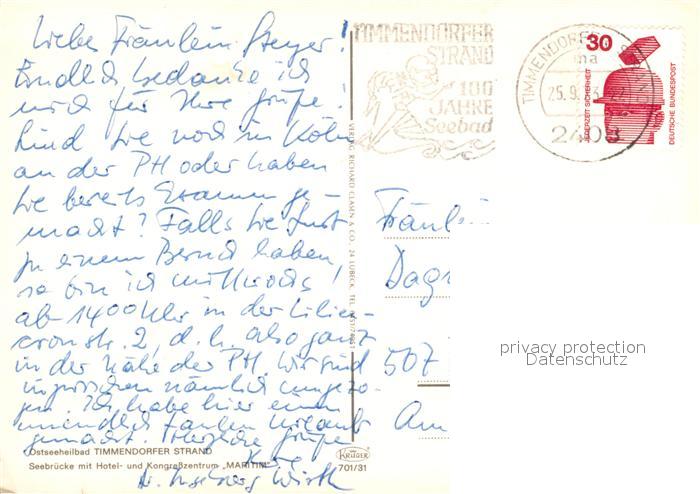 Liebes Fräulein Steyer!
Endlich bedanke ich
mich für Ihre Grüße!
Sind Sie noch in Köln
an der PH oder haben
Sie bereits Examen ge-
macht? Falls Sie Lust
zu einem Besuch haben,
so bin ich mittwochs
ab 14.00 Uhr in der Lilien-
cronstr. 2, d.h. also ganz
in der Nähe der PH. Wir sind
inzwischen nämlich umgezo-
gen. Ich habe hier einen
Urlaub
gemacht. Herzliche Grüße
Ihre
Dr. Ingeborg Wirth
Ostseeheilbad TIMMENDORFER STRAND
Seebrücke mit Hotel- und Kongreßzentrum „MARITIM"
VERLAG RICHARD CLASEN & CO., 24 LÜBECK, TEL.
KRÜGER
701/31
TIMMENDORFER
STRAND
100
JAHRE
Seebad
TIMMENDORFER
ma
25.9.
2408
30
JEDERZEIT SICHERHEIT
DEUTSCHE BUNDESPOST
Fräulein
Dagm
507
Am
privacy protection
Datenschutz